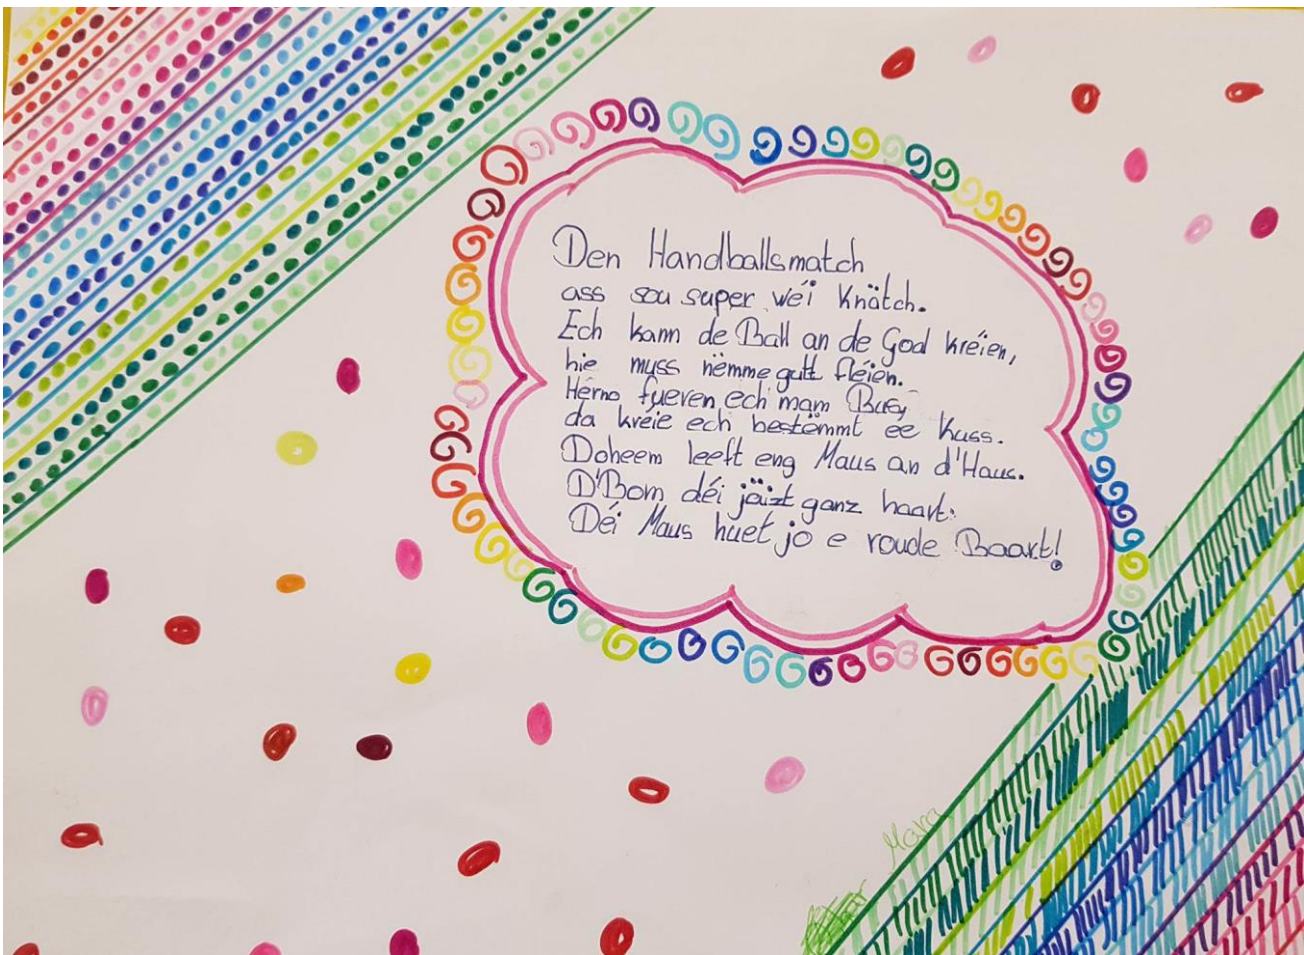 Den Handballsmatch
ass sou super wéi Knätch.
Ech kann de Ball an de God kréien,
hie muss nëmme gutt fléien.
Hérno fueren ech mam Bus,
da kréie ech bestëmmt ee Kuss.
Doheem leeft eng Maus an d'Haus.
D'Bom déi jäizt ganz haart:
Déi Maus huet jo e roude Baart!
Mara